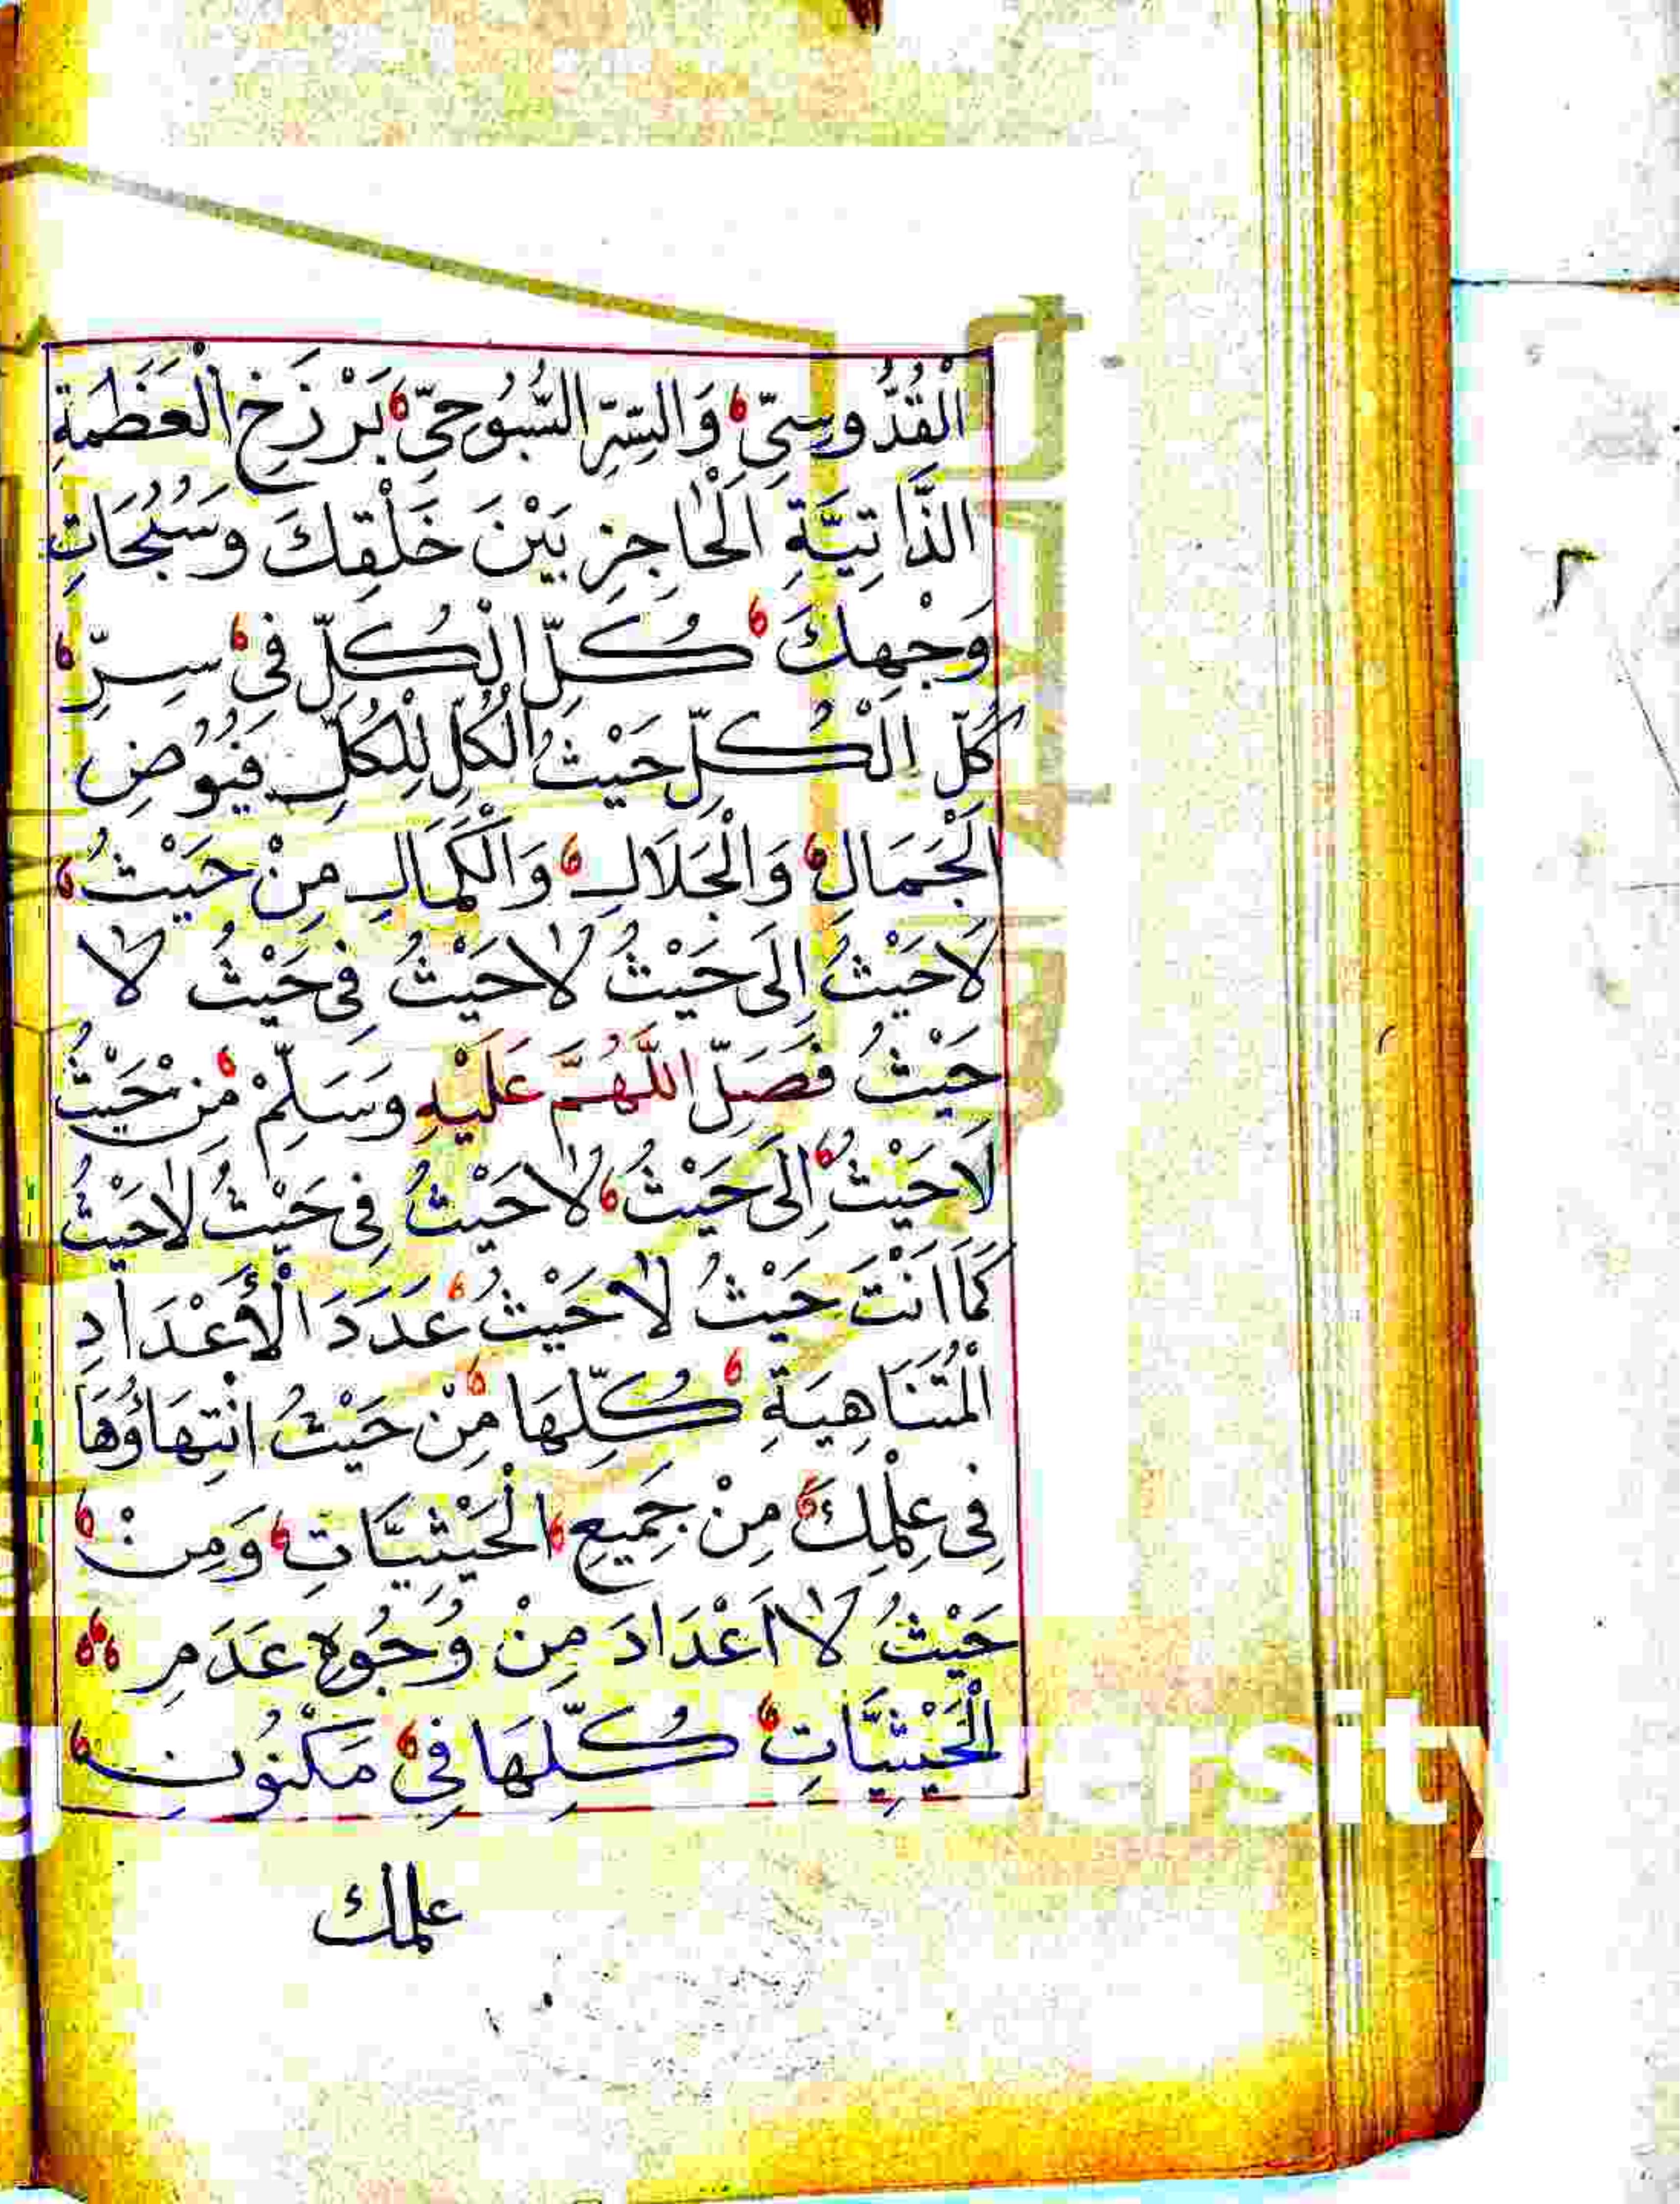 الْقُدُّوسِيِّ وَالسِّرِّ السُّبُّوحِيِّ بَرْزَخِ الْعَظَمَةِ
الذَّاتِيَّةِ الْحَاجِزِ بَيْنَ خَلْقِكَ وَسُبُحَاتِ
وَجْهِكَ كُلِّ الْكُلِّ فِي سِرِّ
كُلِّ الْكُلِّ حَيْثُ الْكُلِّ لِلْكُلِّ فُيُوضِ
الْجَمَالِ وَالْجَلَالِ وَالْكَمَالِ مِنْ حَيْثُ
لَاحَيْثُ إِلَى حَيْثُ لَاحَيْثُ فِي حَيْثُ لَا
حَيْثُ فَصَلِّ اللَّهُمَّ عَلَيْهِ وَسَلِّمْ مِنْ حَيْثُ
لَاحَيْثُ إِلَى حَيْثُ لَاحَيْثُ فِي حَيْثُ لَاحَيْثُ
كَمَا اَنْتَ حَيْثُ لَاحَيْثُ عَدَدَ الْأَعْدَادِ
الْمُتَنَاهِيَةِ كُلِّهَا مِنْ حَيْثُ انْتِهَاؤُهَا
فِي عِلْمِكَ مِنْ جَمِيعِ الْحَيْثِيَّاتِ وَمِنْ
حَيْثُ لَا اَعْدَادَ مِنْ وُجُوهِ عَدَمِ
الْحَيْثِيَّاتِ كُلِّهَا فِي مَكْنُونِ
علمك
٢
ersity